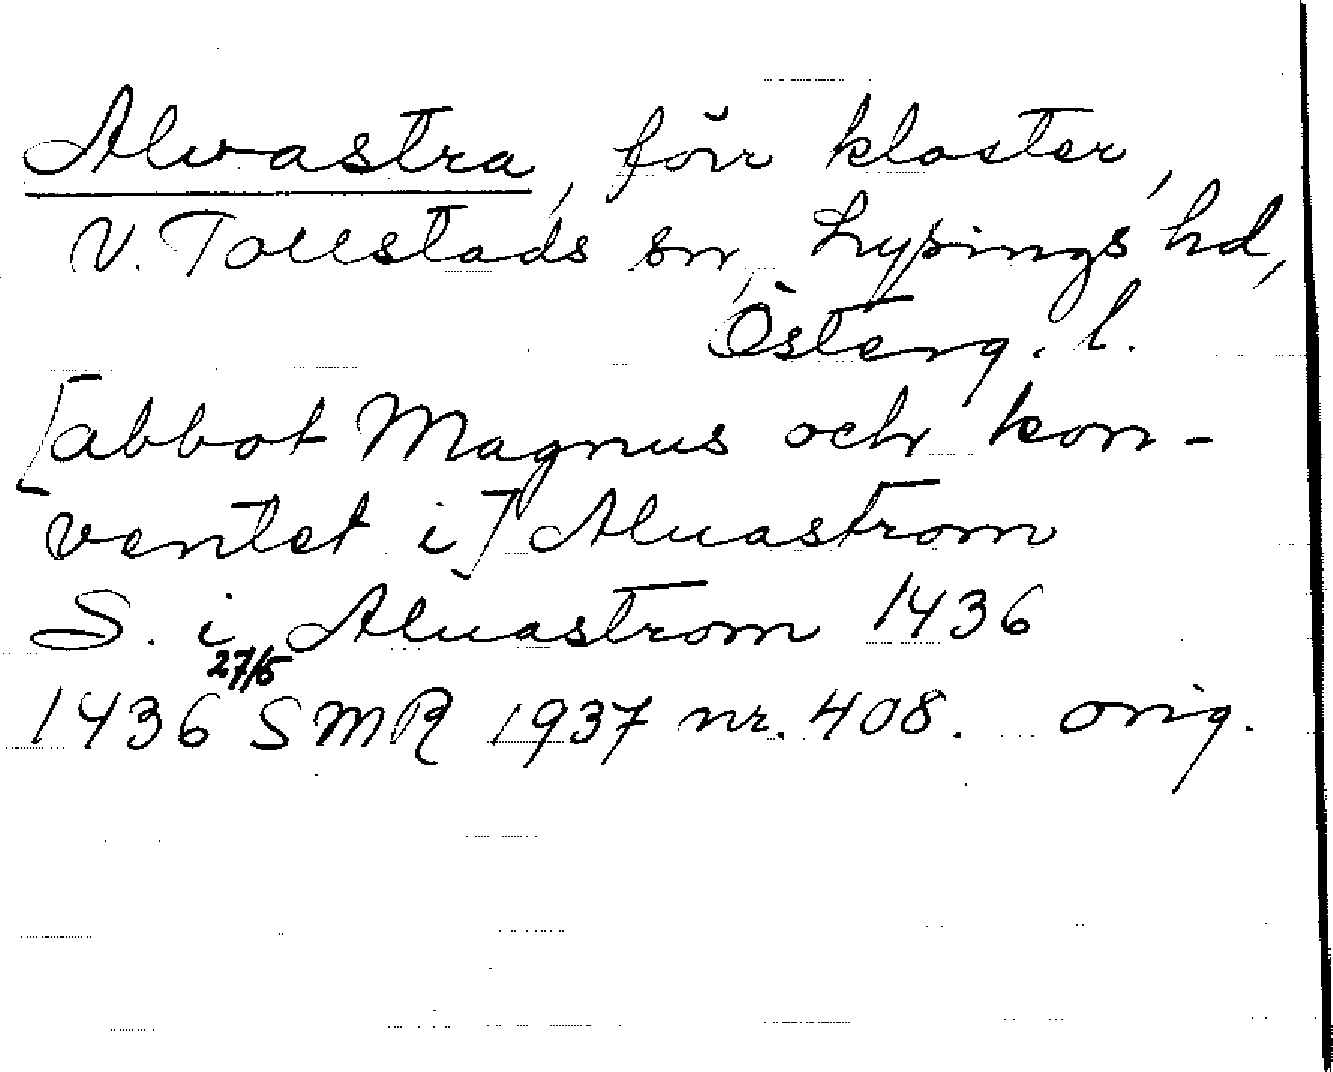 Alvastra, förr kloster,
V. Tollstads sn, Lysings hd,
Österg. l.
[abbot Magnus och kon-
ventet i] Aluastrom
S. i Aluastrom 1436
1436 27/5 SMR 1937 nr. 408. orig.